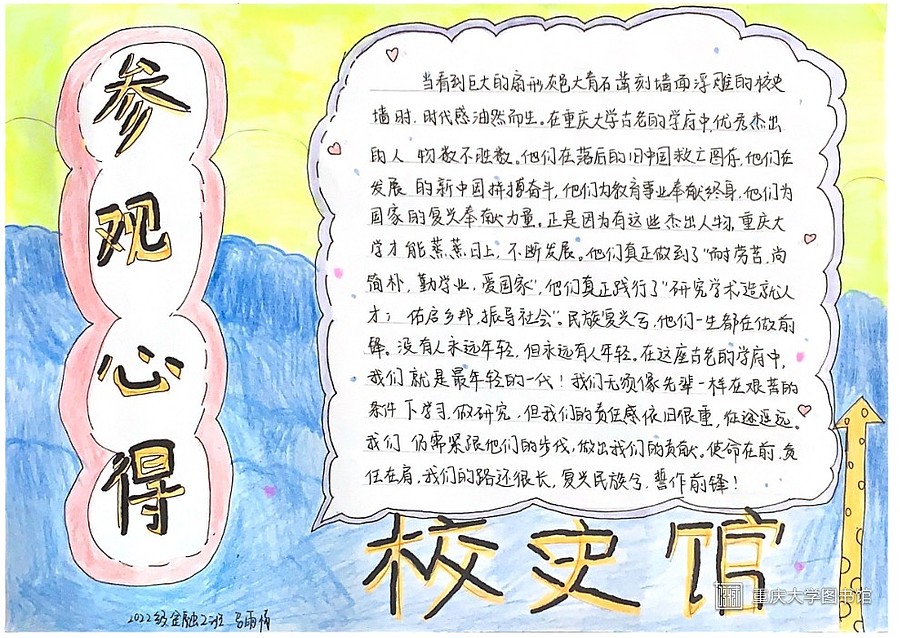 参观心得
当看到巨大的扇形灰色大青石凿刻墙面浮雕的校史
墙时，时代感油然而生。在重庆大学古老的学府中，优秀杰出
的人物数不胜数。他们在落后的旧中国救亡图存，他们在
发展的新中国拼搏奋斗，他们为教育事业奉献终身，他们为
国家的复兴奉献力量。正是因为有这些杰出人物，重庆大
学才能蒸蒸日上，不断发展。他们真正做到了“耐劳苦，尚
简朴，勤学业，爱国家”，他们真正践行了“研究学术，造就人
才；佑启乡邦，振导社会”。民族复兴兮，他们一生都在做前
锋。没有人永远年轻，但永远有人年轻。在这座古老的学府中，
我们就是最年轻的一代！我们无须像先辈一样在艰苦的
条件下学习，做研究，但我们的责任感依旧很重，征途遥远。
我们仍需紧跟他们的步伐，做出我们的贡献，使命在前，责
任在肩，我们的路还很长，复兴民族兮，誓作前锋！
校史馆
2022级金融2班
重庆大学图书馆